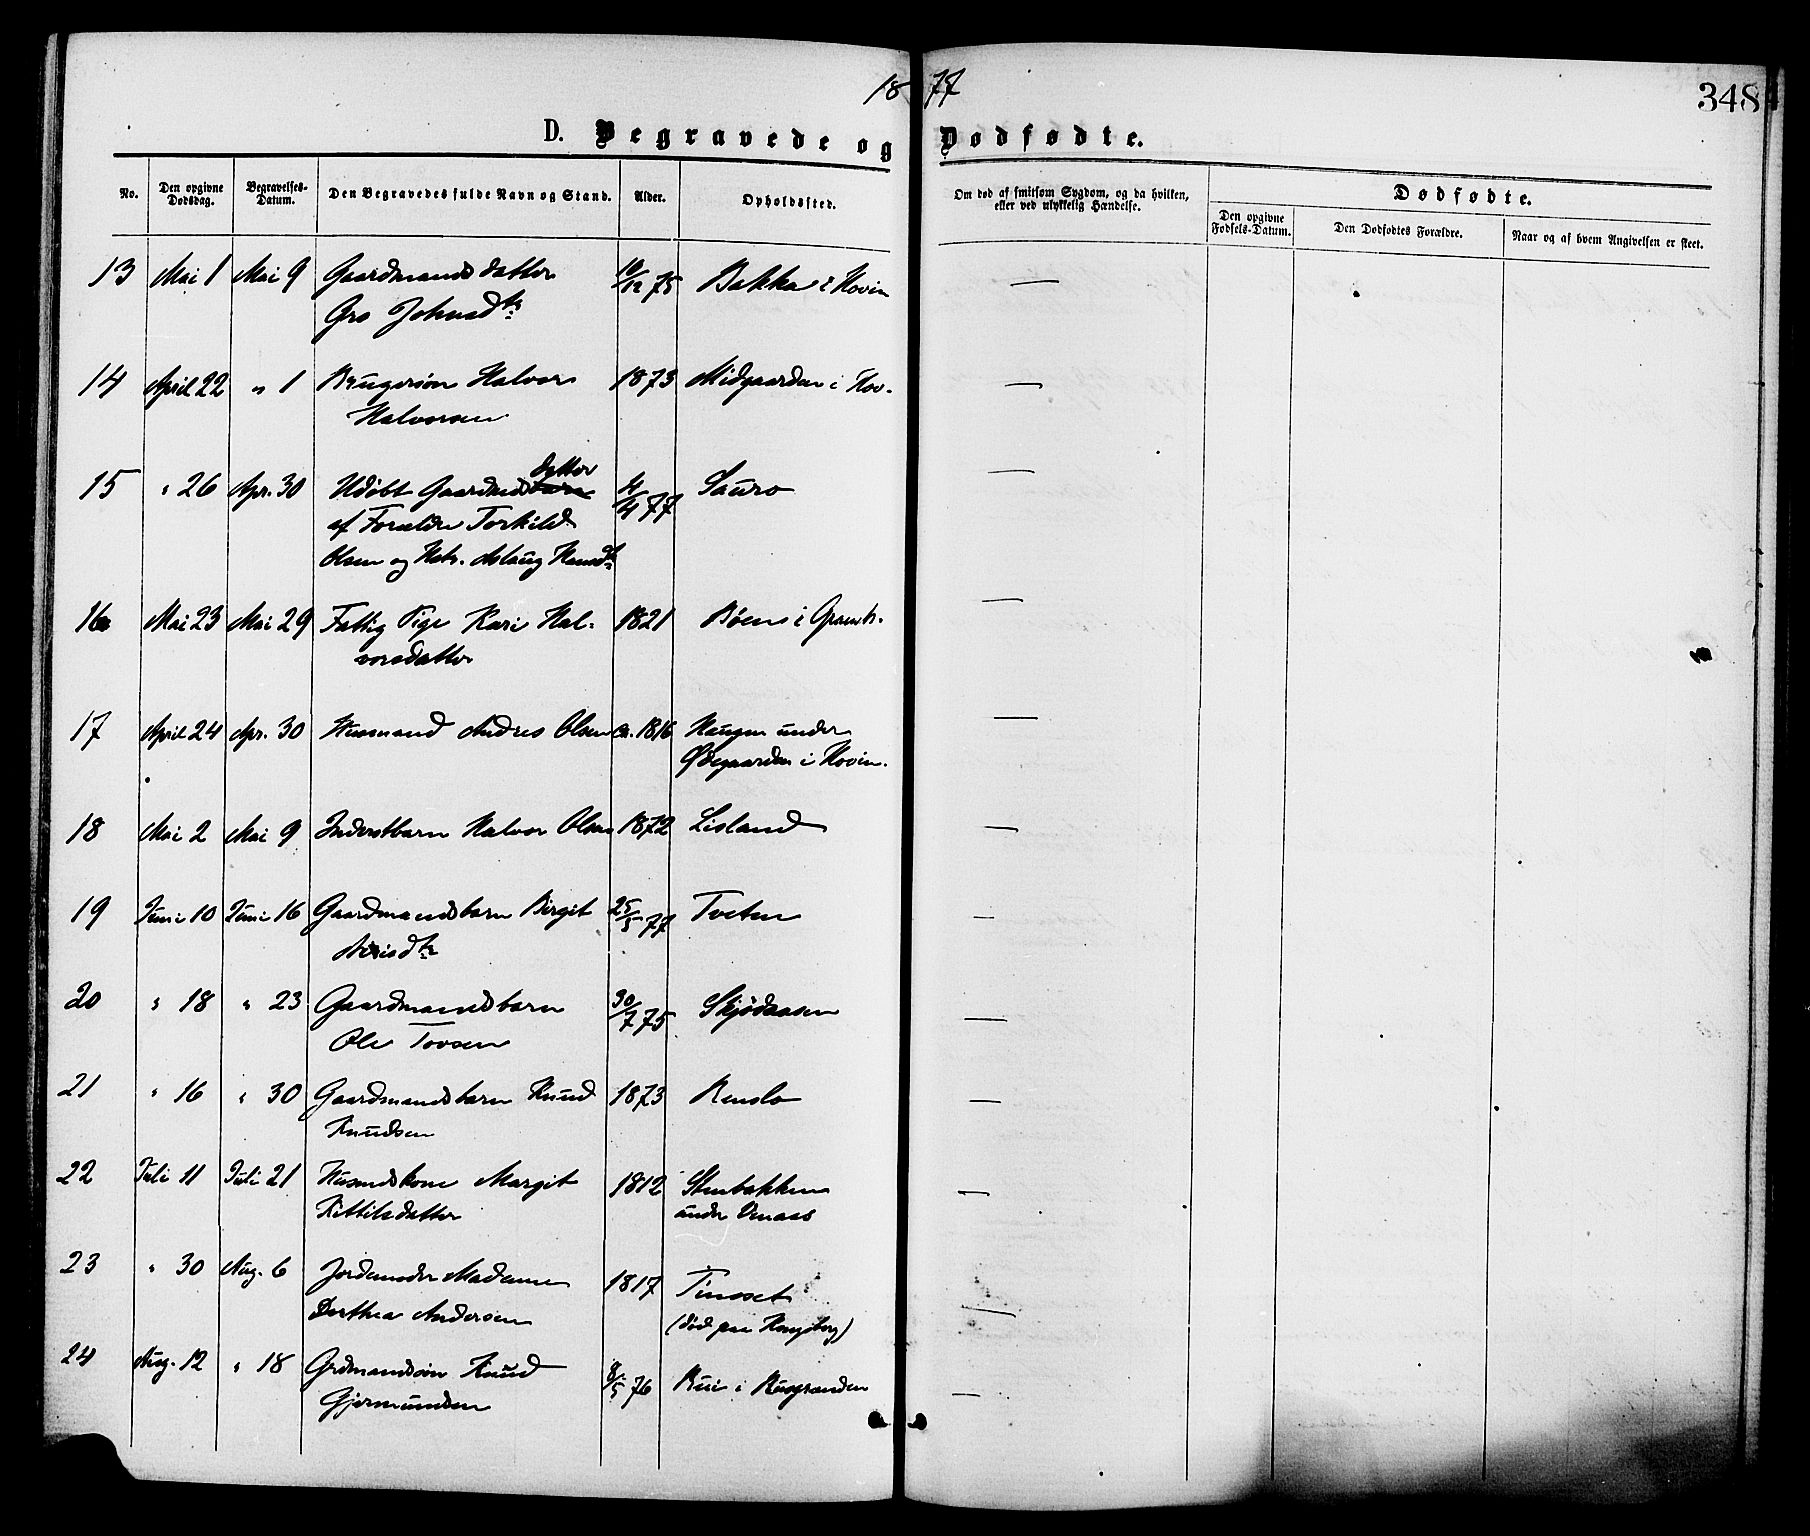 1877
348
D. Begravede og Dødfødte.
No. Den opgivne Dødsdag. Begravelses-Datum. Den Begravedes fulde Navn og Stand. Alder. Opholdssted. Om død af smitsom Sygdom, og da hvilken, eller ved ulykkelig Hændelse. Dødfødte.
Den opgivne Fødsels-Datum. Den Dødfødtes Forældre. Naar og af hvem Angivelsen er skeet.
13 Mai 1 Mai 9 Gaardmandsdatter 10/12 75 Bakka i Hovin —
Gro Johnsdtr
14 April 22 " 1 Halvor 1873 Midgaarden i Hov. —
Halvorsen
datter
15 " 26 Apr. 30 Udøbt Gaardmds 4/4 77 Sauro —
af Forældre Torkild
Olsen og Hstr. Aslaug Hansdtr
16 Mai 23 Mai 29 Fattig Pige Kari Hal- 1821 Bøen i Gransh. —
vorsdatter
17 April 24 Apr. 30 Husmand Andres Olsen ca. 1816 Haugen under —
Ødegaarden i Hovin.
18 Mai 2 Mai 9 Inderstbarn Halvor Olsen 1872 Lisland —
19 Juni 10 Juni 16 Gaardmandsbarn Birgit 25/5 77 Tveten —
20 " 18 " 23 Gaardmandsbarn 30/7 75 Skjødaasen —
Ole Tovsen
21 " 16 " 30 Gaardmandsbarn Knud 1873 Renslo —
Knudsen
22 Juli 11 Juli 21 Husmdskone Margit 1812 Stenbakken —
Kittilsdatter under Venaas
23 " 30 Aug. 6 Jordemoder Madame 1817 Tinoset —
Dorthea Andersen (død paa Kongsberg)
24 Aug. 12 " 18 Grdmandssøn Knud 8/5 76 Bui i Busgranden —
Gjermundsen